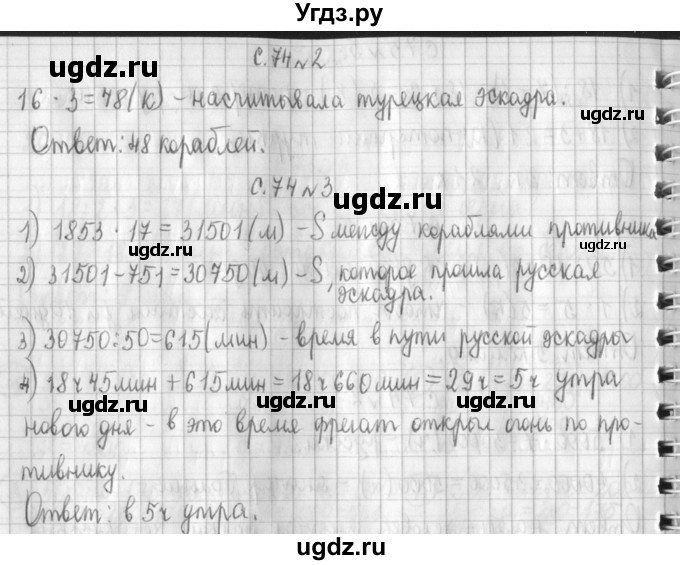 Угдз.ру
с.74 №2
16 · 3 = 48 (к) - насчитывала турецкая эскадра.
Ответ: 48 кораблей.
с.74 №3
1) 1853 · 17 = 31501 (м) - S между кораблями противника
2) 31501 - 751 = 30750 (м) - S, которое прошла русская
эскадра.
3) 30750 : 50 = 615 (мин) - время в пути русской эскадры
4) 18ч 45мин + 615мин = 18ч 660мин = 29ч = 5ч утра
нового дня - в это время фрегат открыл огонь по про-
тивнику.
Ответ: в 5ч утра.
ugdz.ru
ugdz.ru
ugdz.ru
ugdz.ru
ugdz.ru
ugdz.ru
ugdz.ru
ugdz.ru
ugdz.ru
ugdz.ru
ugdz.ru
ugdz.ru